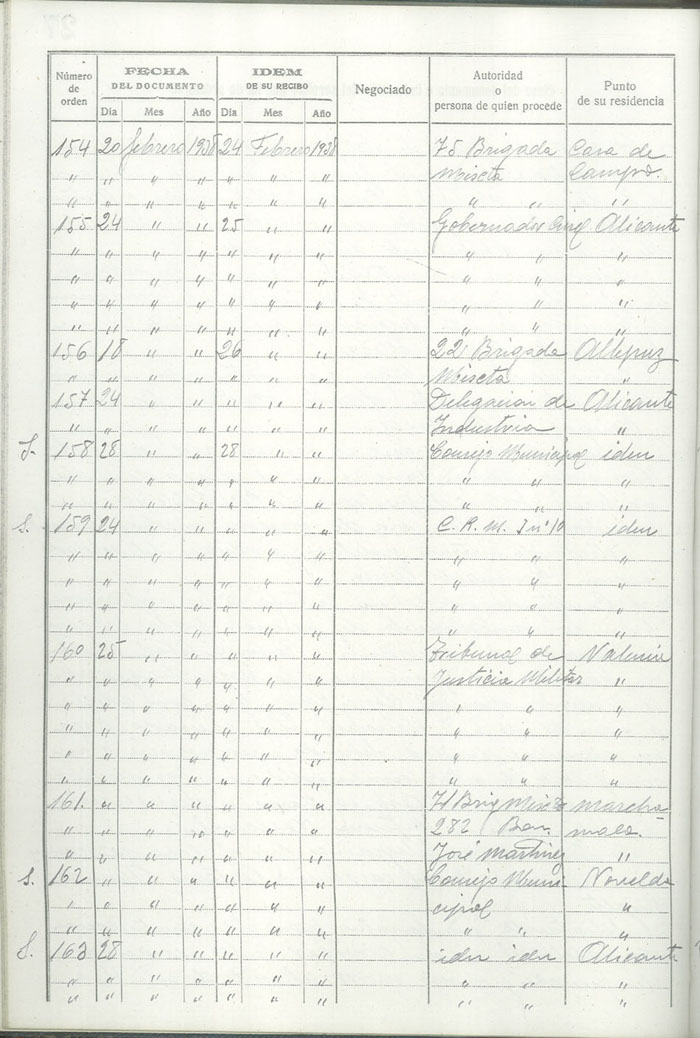 Número de orden FECHA DEL DOCUMENTO IDEM DE SU RECIBO Negociado Autoridad o persona de quien procede Punto de su residencia
Día Mes Año Día Mes Año
154 20 febrero 1938 24 Febrero 1938 75 Brigada Casa de
" " " " " " " Mixta Campo.
" " " " " " " " "
155 24 " " 25 " " Gobernador Civil Alicante
" " " " " " " " "
" " " " " " " " "
" " " " " " " " "
" " " " " " " " "
156 18 " " 26 " " 22 Brigada Allepuz
" " " " " " " Mixta "
157 24 " " " " " Delegacion de Alicante
" " " " " " " Industria "
S. 158 28 " " 28 " " Consejo Municipal iden
" " " " " " " " " "
" " " " " " " " " "
S. 159 24 " " " " " C. R. M. I nº 10 iden
" " " " " " " " " "
" " " " " " " " " "
" " " " " " " " " "
" " " " " " " " " "
160 25 " " " " " Tribunal de Valencia
" " " " " " " Justicia Militar "
" " " " " " " " " "
" " " " " " " " " "
" " " " " " " " " "
" " " " " " " " " "
161. " " " " " " 71 Brig Mixta marcha
" " " " " " " 282 Bon. malo.
" " " " " " " José Martinez "
S. 162 " " " " " " Consejo Muni- Novelda
" " " " " " " cipal "
" " " " " " " " " "
S. 163 28 " " " " " iden iden Alicante
" " " " " " " " " "
" " " " " " " " " "